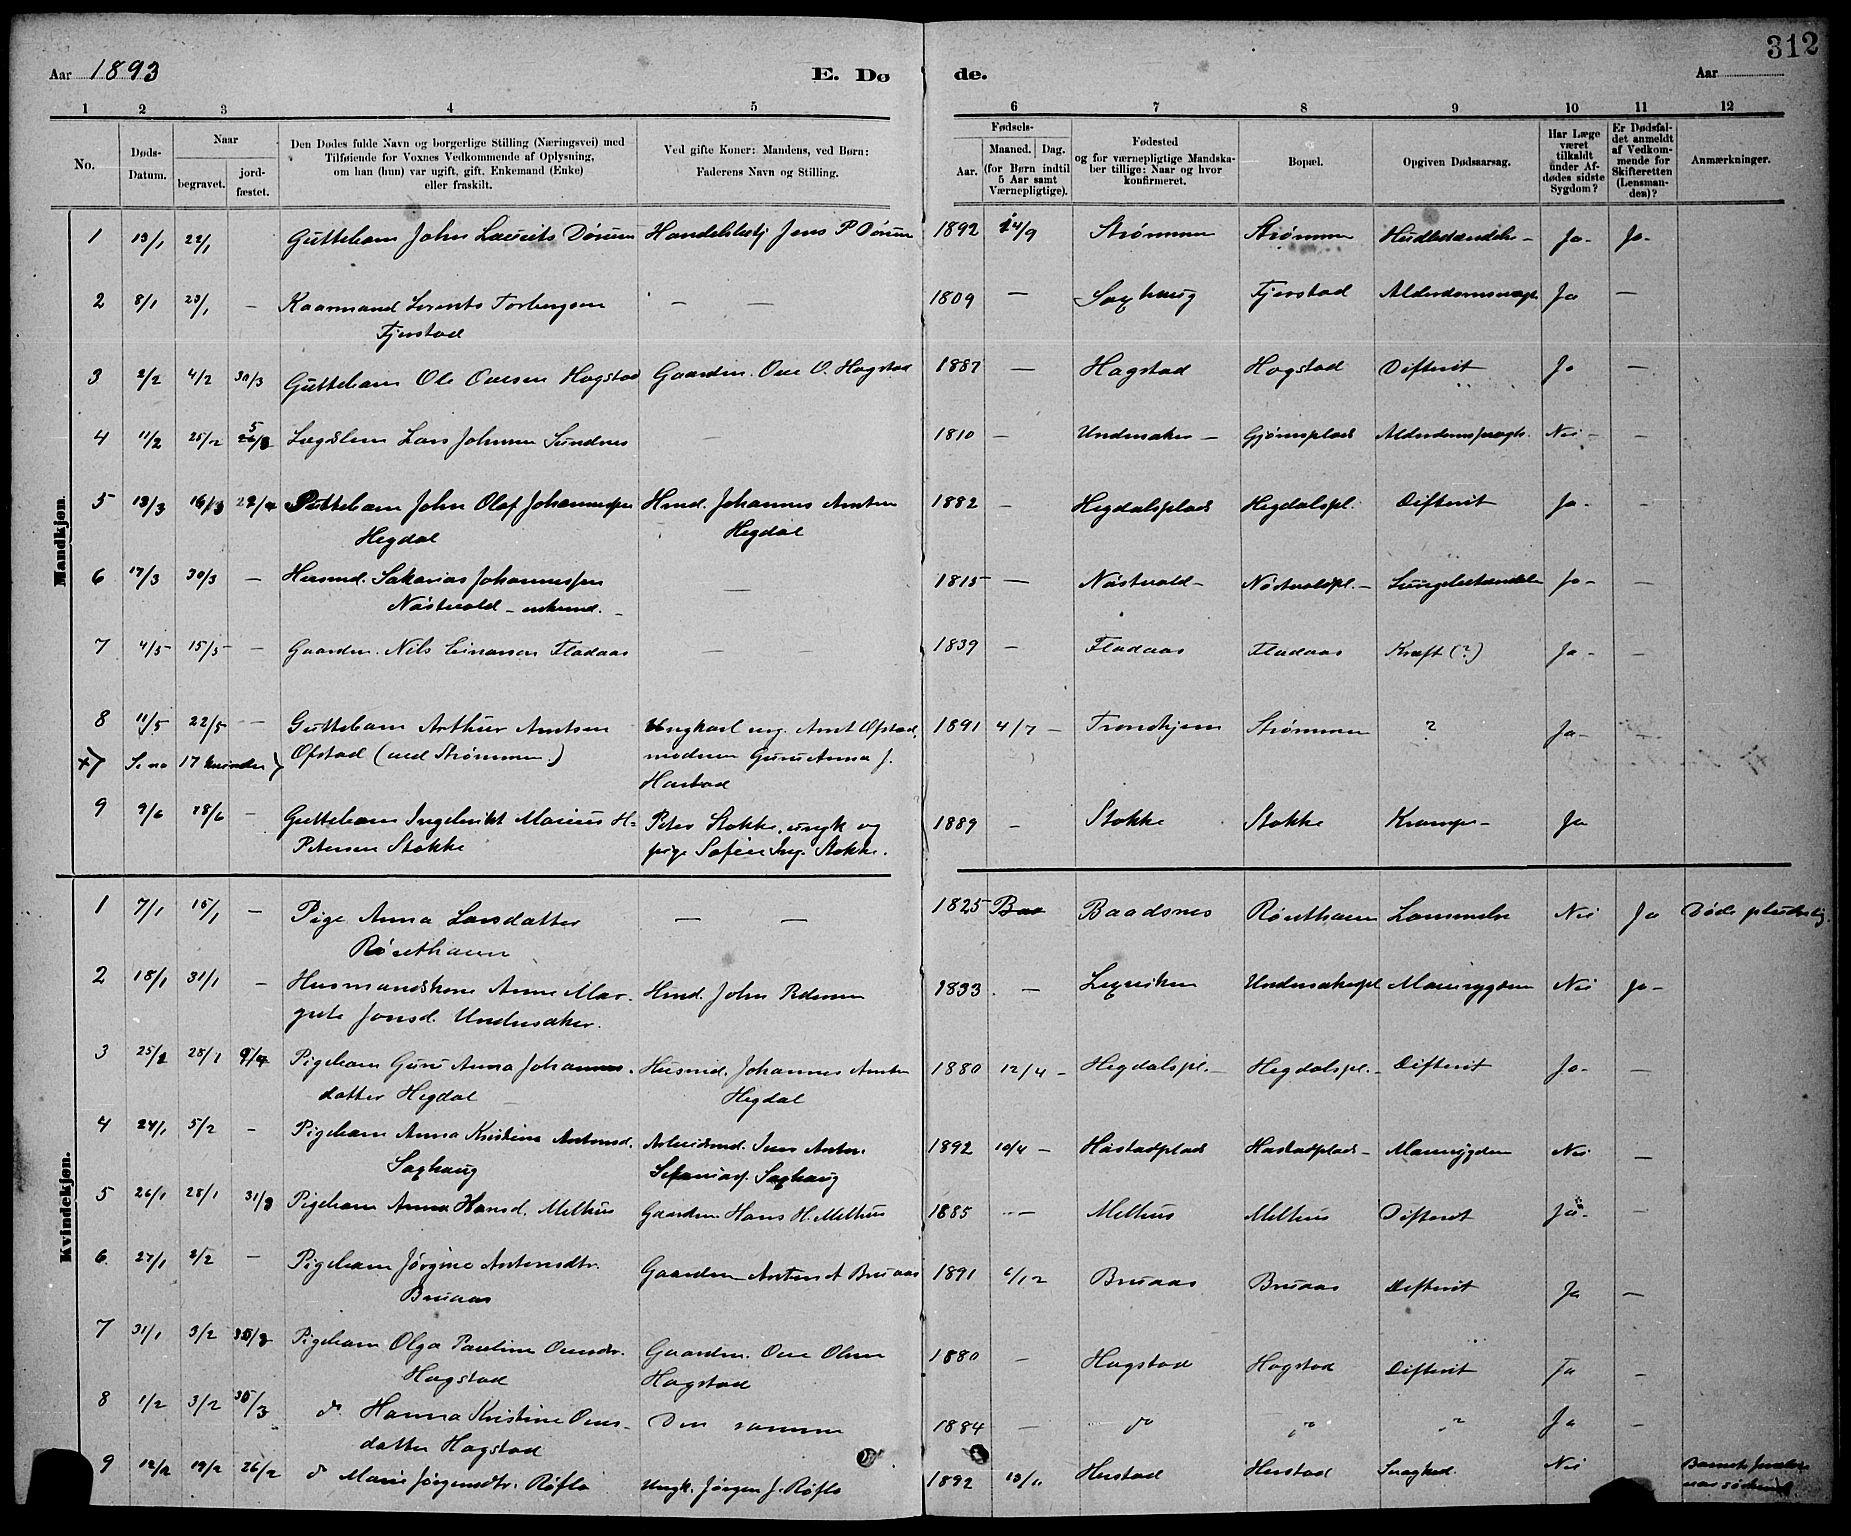 312
Aar 1893 E. Dø de. Aar
1 2 3 4 5 6 7 8 9 10 11 12
No.
Døds-
Datum.
Naar
begravet.
jord-
fæstet.
Den Dødes fulde Navn og borgerlige Stilling (Næringsvei) med
Tilføiende for Voxnes Vedkommende af Oplysning,
om han (hun) var ugift, gift, Enkemand (Enke)
eller fraskilt.
Ved gifte Koner: Mandens, ved Børn:
Faderens Navn og Stilling.
Fødsels-
Aar.
Maaned. Dag.
(for Børn indtil
5 Aar samt
Værnepligtige).
Fødested
og for værnepligtige Mandska-
ber tillige: Naar og hvor
konfirmeret.
Bopæl.
Opgiven Dødsaarsag.
Har Læge
været
tilkaldt
under Af-
dødes sidste
Sygdom?
Er Dødsfal-
det anmeldt
af Vedkom-
mende for
Skifteretten
(Lensman-
den)?
Anmærkninger.
Mandkjøn.
1 13/1 22/1 Guttebarn John Laurits Dørum Handelsbetj Jens P Dørum 1892 14/9 Strømmen Strømmen Ja- Ja-
2 8/1 23/1 — Kaarmand Lorents Torbergsen — — 1809 — Saxhaug Fjerstad Ja —
Fjerstad
3 2/2 4/2 30/3 Guttebarn Ole Ovesen Hagstad Gaardm. Ove O. Hagstad 1887 — Hagstad Hagstad Difterit Ja —
4 11/2 25/2 Lægdslem Lars Johnsen Sundnes — 1810 — Undersaker — Gjørvsplads Nei — —
5 13/3 16/3 Guttebarn John Olaf Johannessen Hmd. Johannes Arntsen 1882 — Hegdalsplads Hegdalspl. Difterit Ja- —
Hegdal Hegdal
6 17/3 30/3 — Husmd. Sakarias Johannessen 1815 — Nøstvold — Nøstvoldpl. — Lungebetændelse Ja- —
Nøstvold — enkemd. — —
7 4/5 15/5 — Gaardm. Nils Einarsen Fladaas — — 1839 — Fladaas Fladaas Kræft (?) Ja- —
8 11/5 22/5 — Guttebarn Arthur Arntsen Ungkarl og Arnt Ofstad, 1891 4/7 — Trondhjem Strømmen ? Ja-
Se no 17 kvinder Ofstad (ved Strømmen) moderen Guruanna J.
Hastad
9 9/6 18/6 — Guttebarn Ingebrikt Marius H- Peter Stokke, ungk og 1889 — Stokke Stokke Krampe — Ja
Petersen Stokke pige Sofie Ing. Stokke.
Kvindekjøn.
1 7/1 15/1 — Pige Anna Larsdatter — — 1825 Baadsnes Lammelse Nei Ja Døde pludselig.
2 18/1 31/1 — Husmandskone Anne Mar- Hmd. John Pedersen 1833 — Lexviken Undersakerpl Nei Ja-
grete Jonsd. Undersaker.
3 25/1 28/1 9/4 Pigebarn Guru Anna Johannes- Husmd. Johannes Arntsen 1880 12/4 — Hegdalspl. — Hegdalspl. — Difterit Ja- —
datter Hegdal Hegdal
4 24/1 5/2 — Pigebarn Anna Kristine Antonsd. Arbeidsmd. Anton 1892 10/4 — Hastadplads Hastadplads — Nei —
Saxhaug Saxhaug
5 26/1 28/1 31/3 Pigebarn Anna Hansd. Melhus Gaardm Hans H. Melhus 1885 — Melhus Melhus Difterit Ja- —
6 27/1 2/2 — Pigebarn Jørgine Antonsdtr. Gaardm Anton A Bruaas 1891 6/12 Bruaas Bruaas Difterit Ja —
Bruaas
7 31/1 3/2 30/3 Pigebarn Olga Pauline Ovesdtr. Gaardm. Ove Olsen 1880 — Hagstad Hagstad Difterit Ja —
Hagstad Hagstad
8 1/2 3/2 30/3 do Hanna Kristine Oves- Den samme 1884 — do " " Ja —
datter Hagstad
9 12/2 19/2 26/2 do Marie Jørgensdtr. Røflo Ungk. Jørgen J. Røflo 1892 13/11 Herstad Herstad Svaghed. Nei